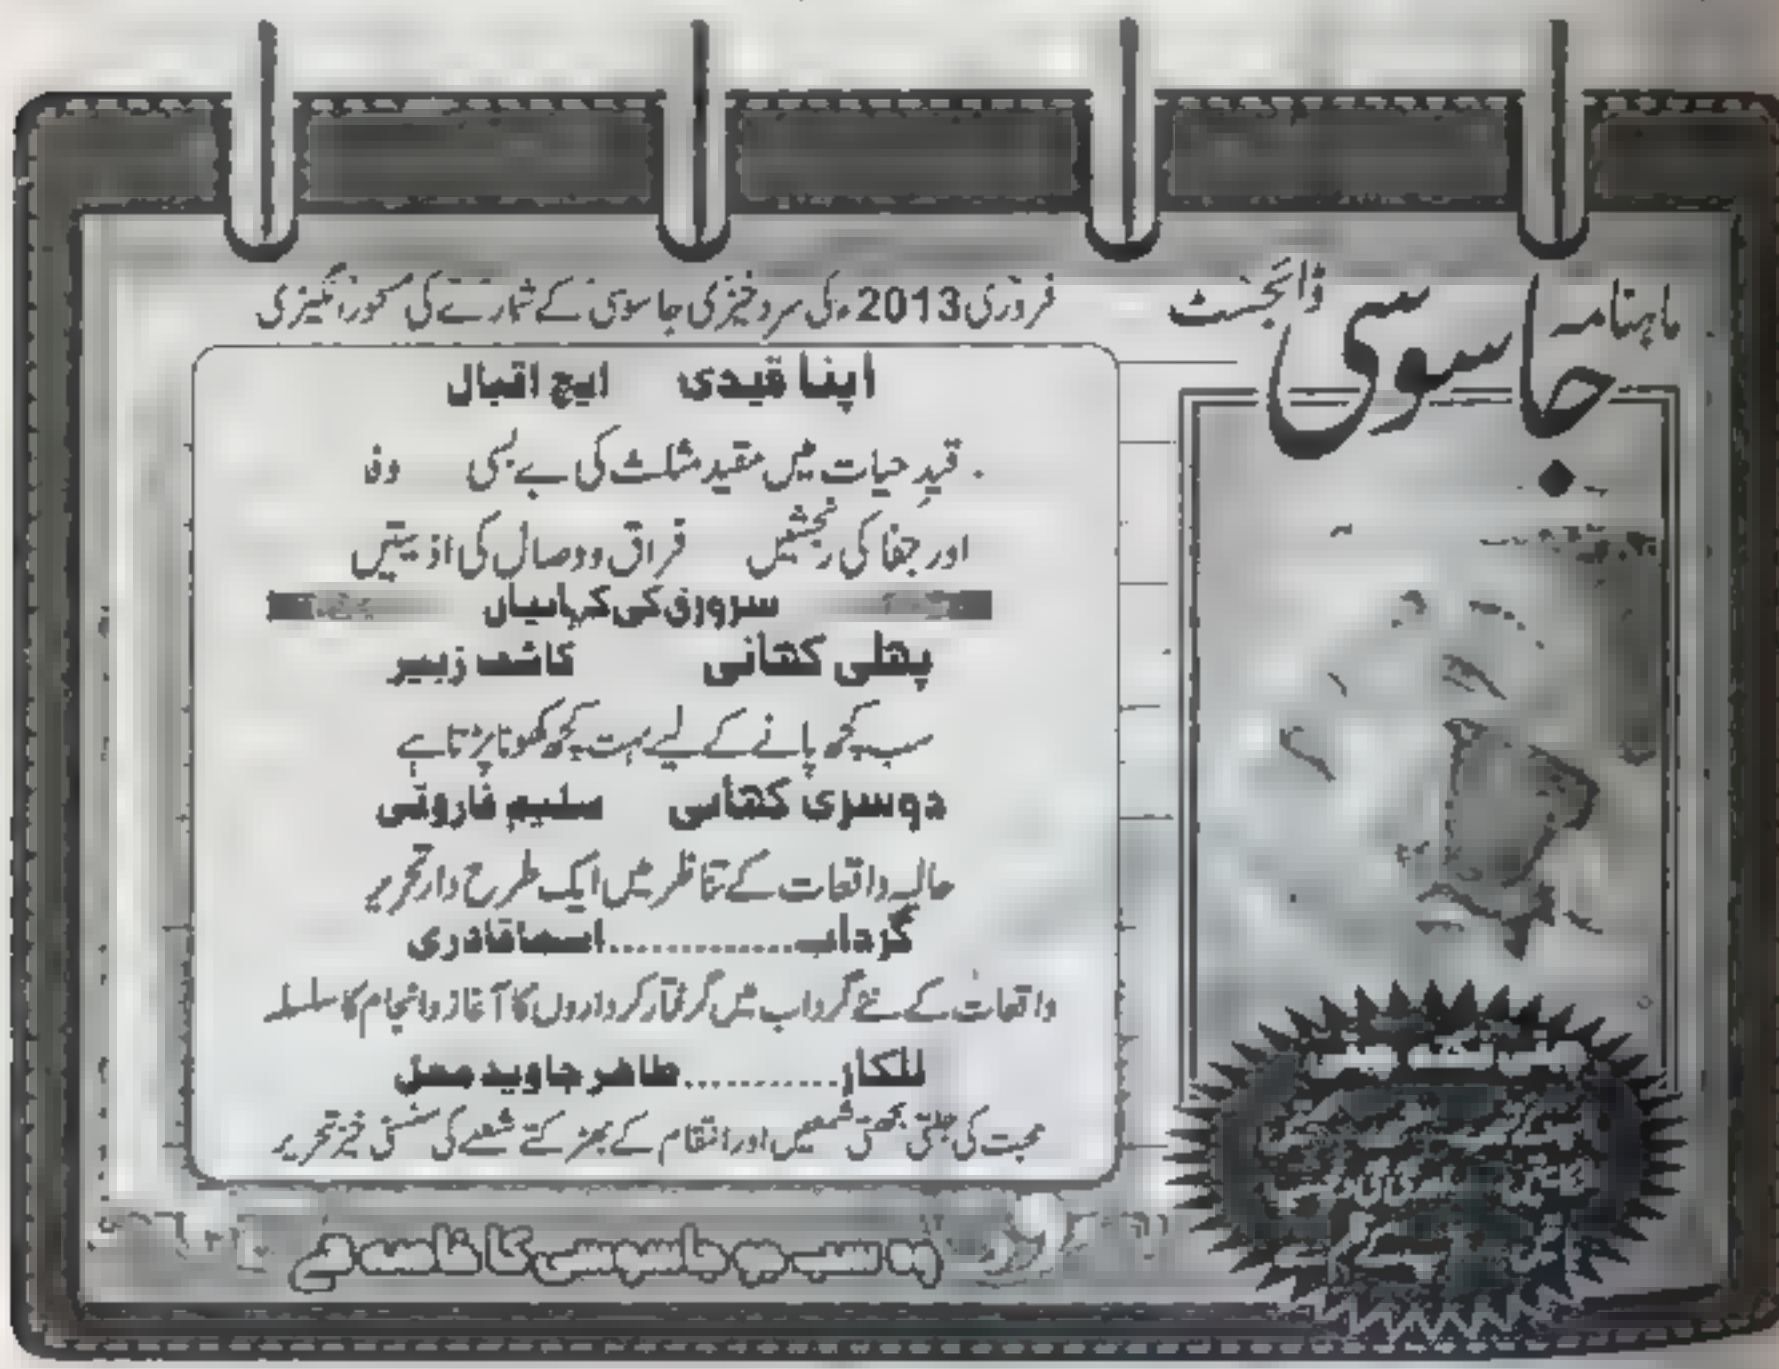 ماہنامہ جاسوسی ڈائجسٹ
فروری 2013ء کی سرد خیزی جاسوسی کے شمارے کی سحر انگیزی
اپنا قیدی ایچ اقبال
قیدِ حیات میں مقید مثلث کی بے بسی وفا
اور جفا کی رنجشیں فراق و وصال کی اذیتیں
سرورق کی کہانیاں
پہلی کہانی کاشف زبیر
سب کچھ پانے کے لیے بہت کچھ کھونا پڑتا ہے
دوسری کہانی سلیم فاروقی
حالیہ واقعات کے تناظر میں ایک طرح دار تحریر
گرداب.............اسما قادری
واقعات کے نئے گرداب میں گرفتار کرداروں کا آغاز و انجام کا سلسلہ
للکار...........طاہر جاوید مغل
محبت کی جلتی بجھتی شمعیں اور انتقام کے بھڑکتے شعلے کی سنسنی خیز تحریر
وہ سب جو جاسوسی کا خاصہ ہے